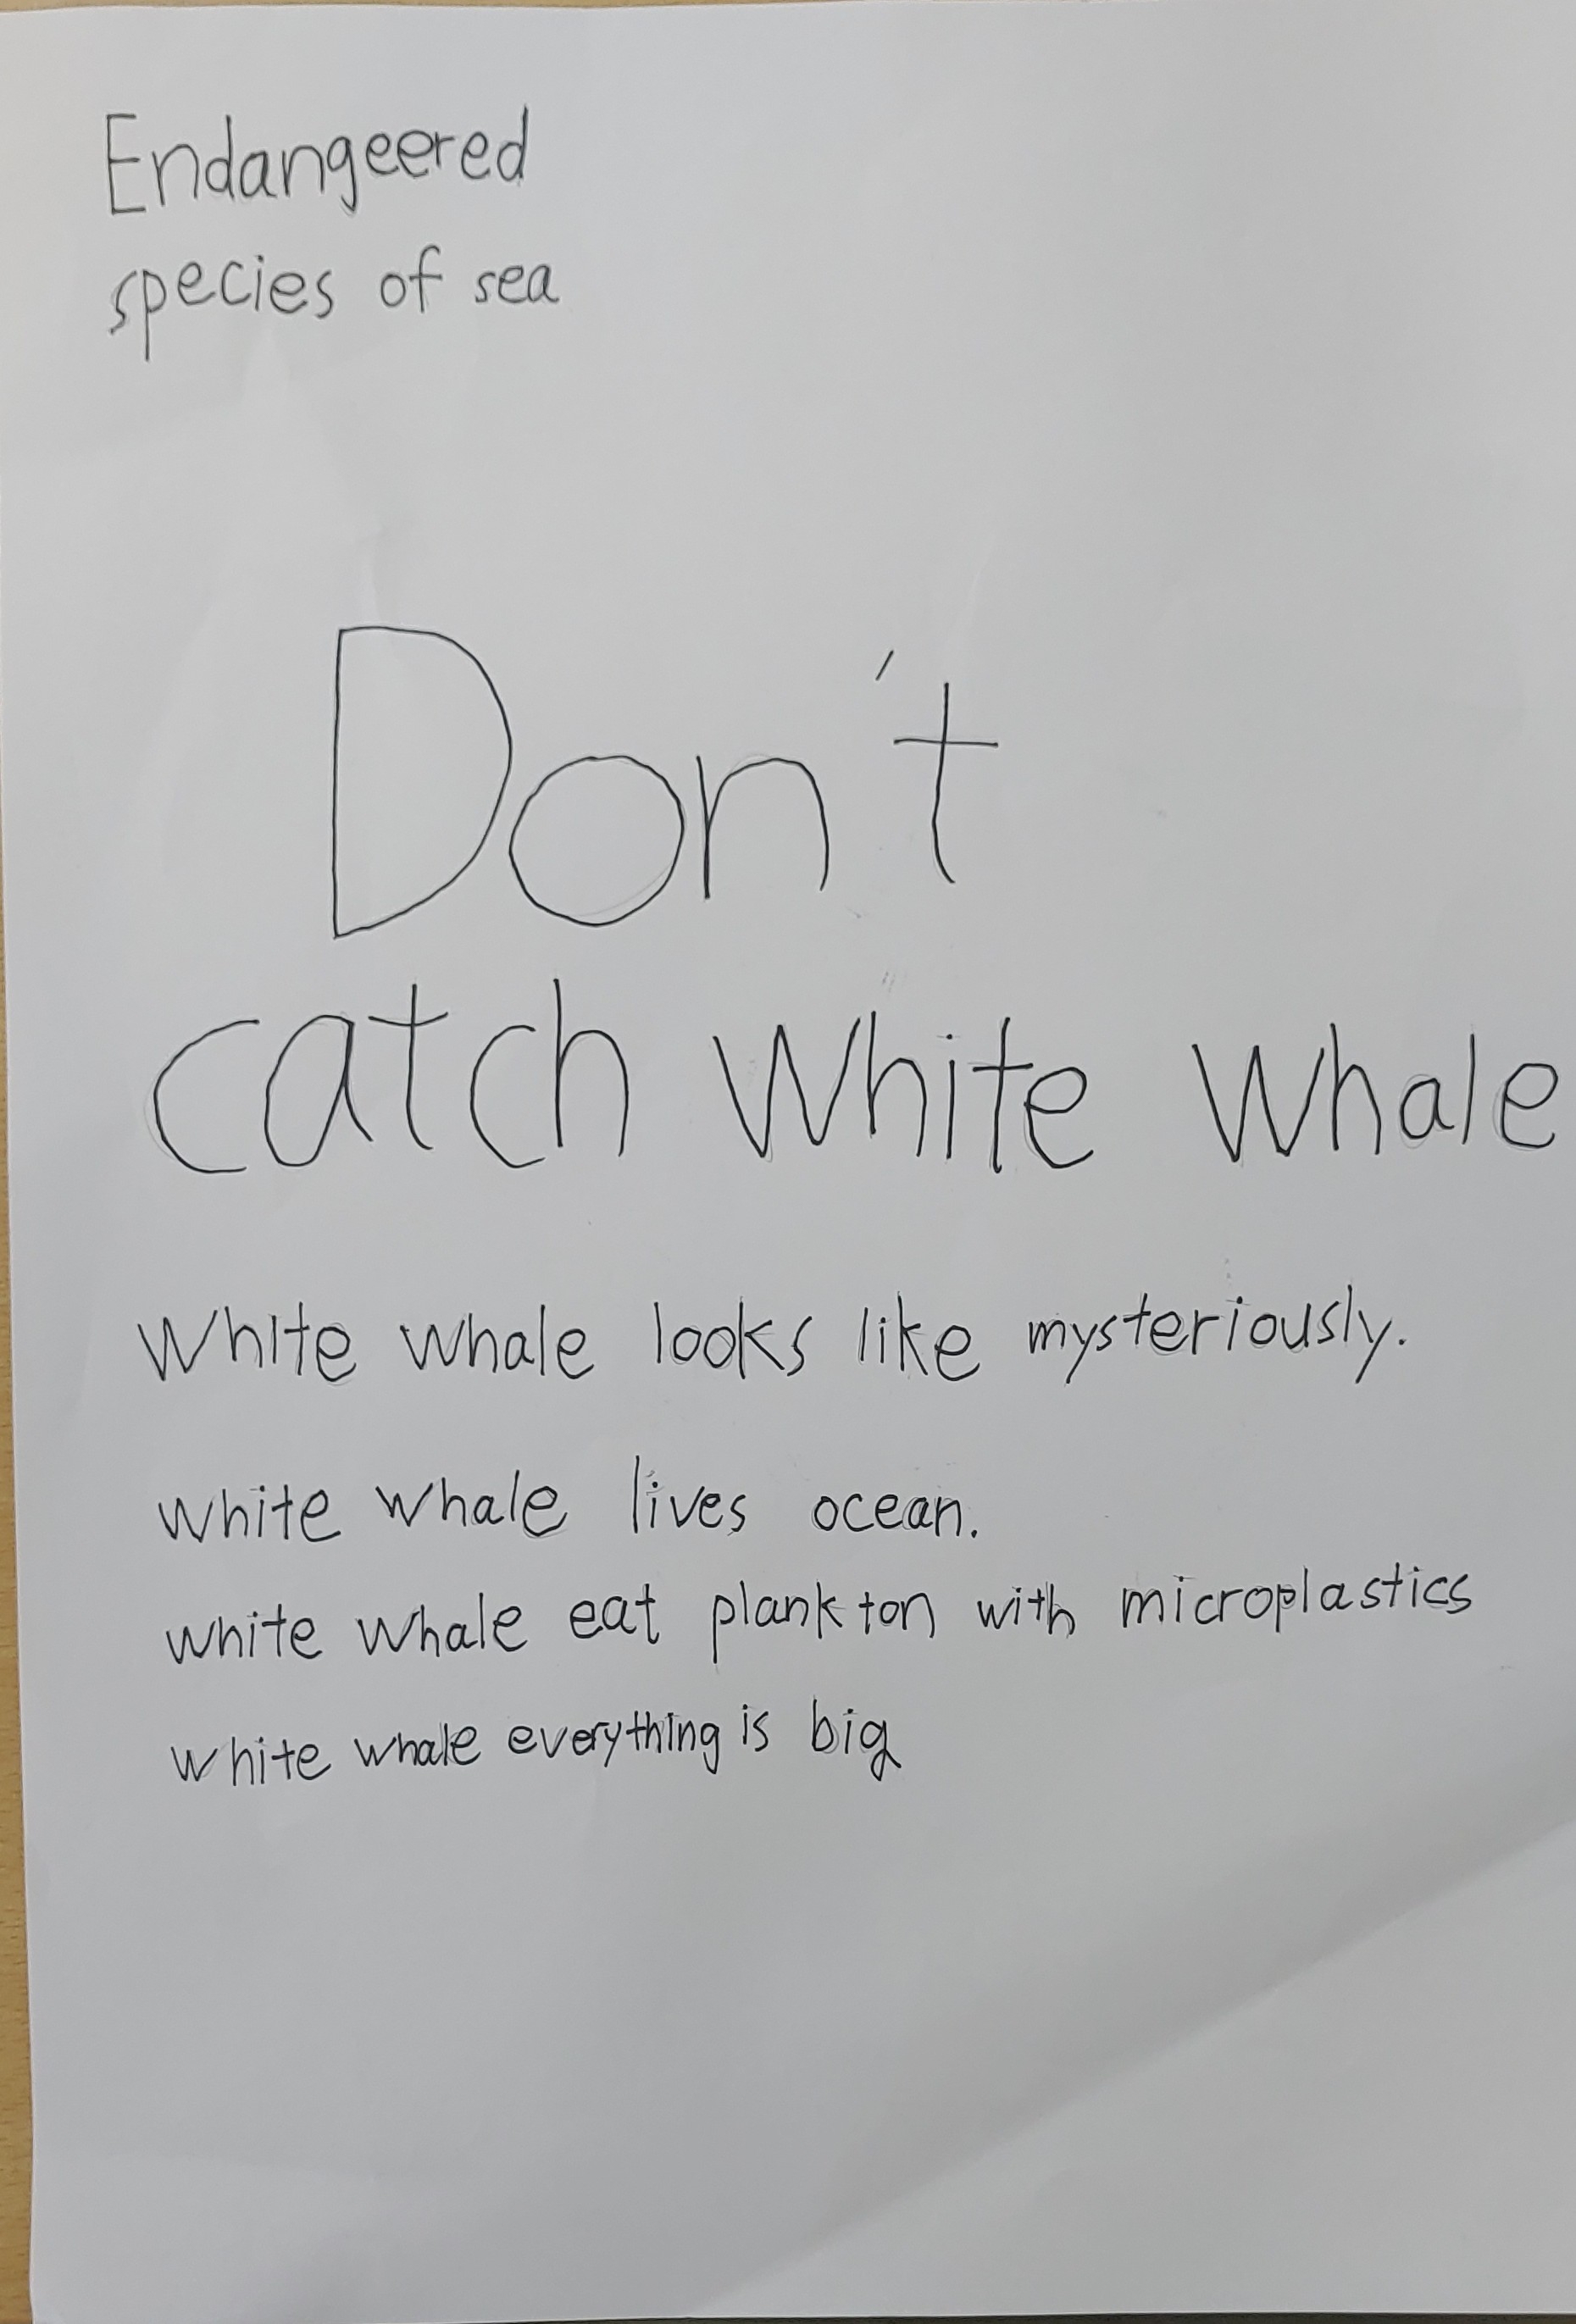 Endangeered
species of sea
Don't
catch white whale
White whale looks like mysteriously.
white whale lives ocean.
white whale eat plankton with microplastics
white whale everything is big